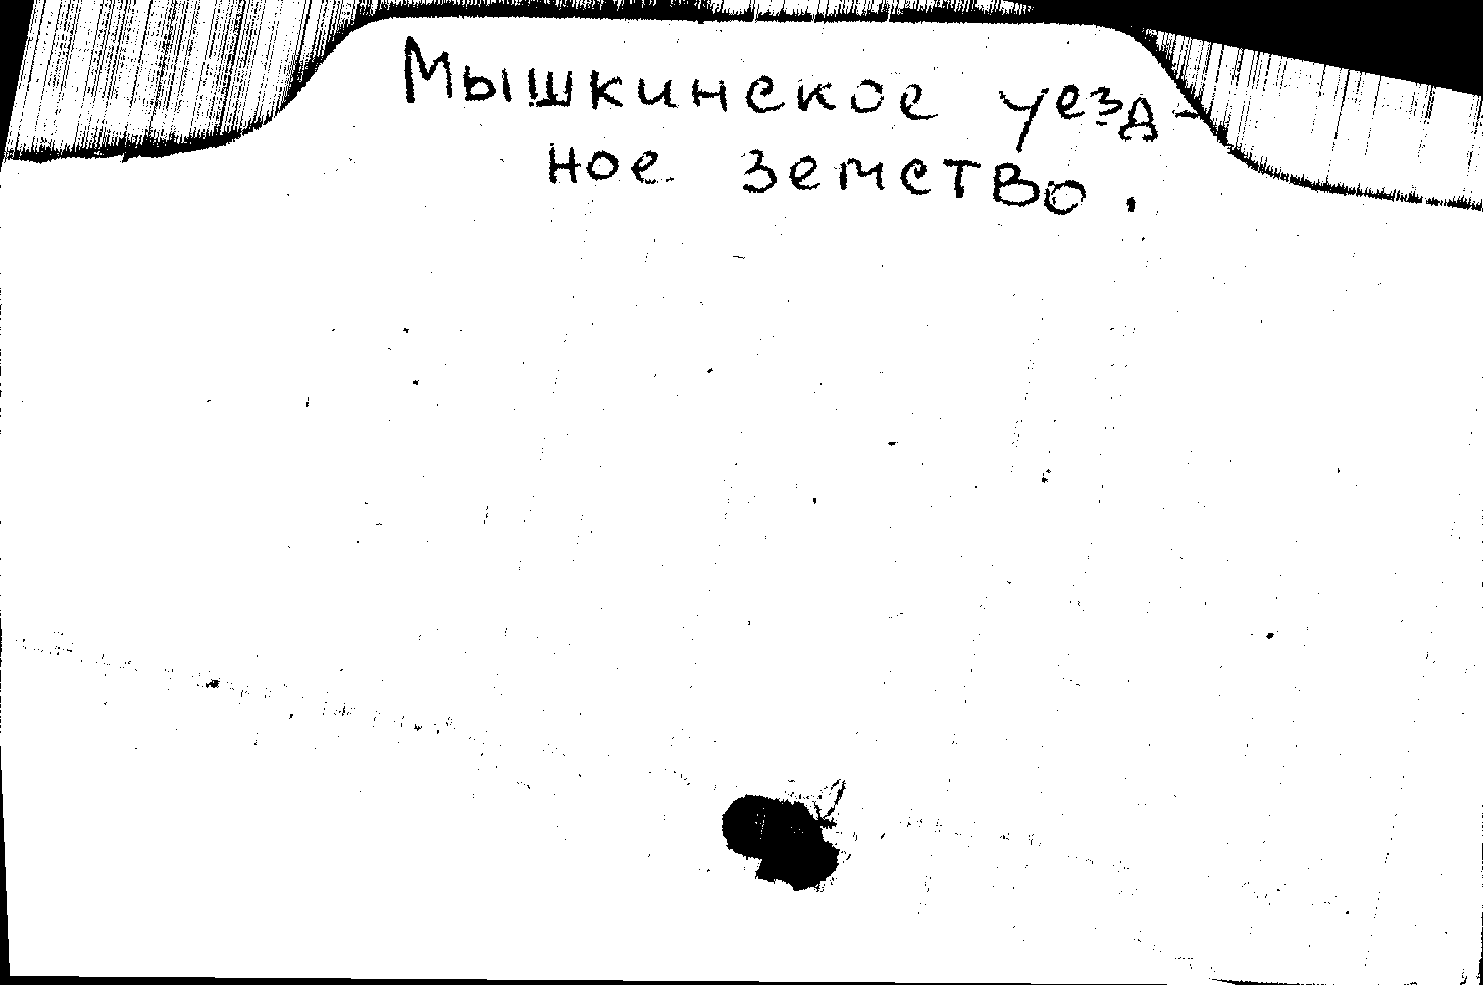 Мышкинское уезд-
ное земство.